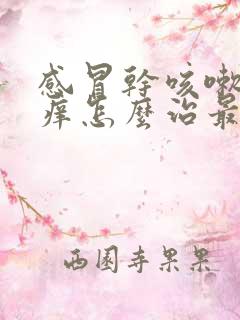 感冒幹咳嗽
痒怎麼治最
西園寺果果